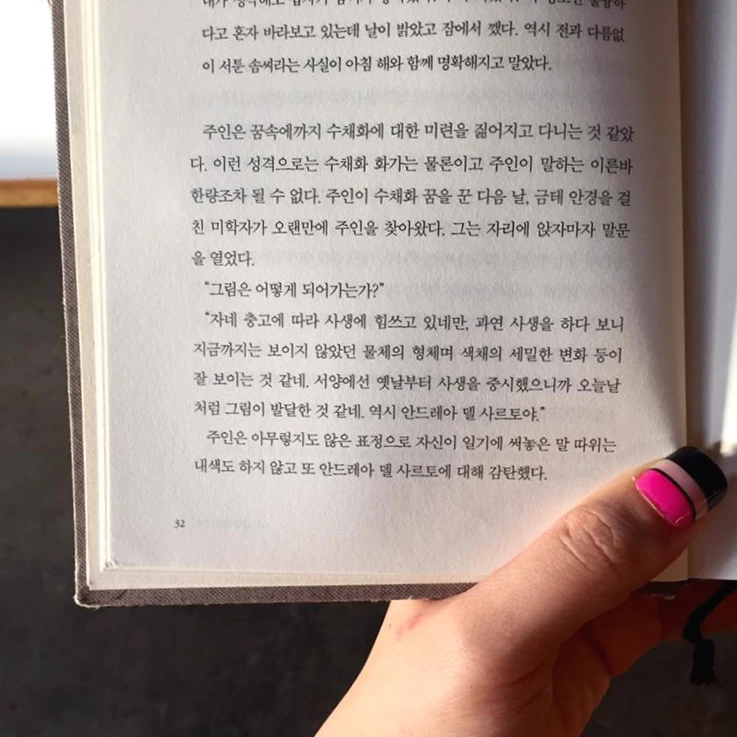 다고 혼자 바라보고 있는데 날이 밝았고 잠에서 깼다. 역시 전과 다름없
이 서툰 솜씨라는 사실이 아침 해와 함께 명확해지고 말았다.
주인은 꿈속에까지 수채화에 대한 미련을 짊어지고 다니는 것 같았
다. 이런 성격으로는 수채화 화가는 물론이고 주인이 말하는 이른바
한량조차 될 수 없다. 주인이 수채화 꿈을 꾼 다음 날, 금테 안경을 걸
친 미학자가 오랜만에 주인을 찾아왔다. 그는 자리에 앉자마자 말문
을 열었다.
“그림은 어떻게 되어가는가?”
“자네 충고에 따라 사생에 힘쓰고 있네만, 과연 사생을 하다 보니
지금까지는 보이지 않았던 물체의 형체며 색채의 세밀한 변화 등이
잘 보이는 것 같네. 서양에선 옛날부터 사생을 중시했으니까 오늘날
처럼 그림이 발달한 것 같네. 역시 안드레아 델 사르토야.”
주인은 아무렇지도 않은 표정으로 자신이 일기에 써놓은 말 따위는
내색도 하지 않고 또 안드레아 델 사르토에 대해 감탄했다.
32